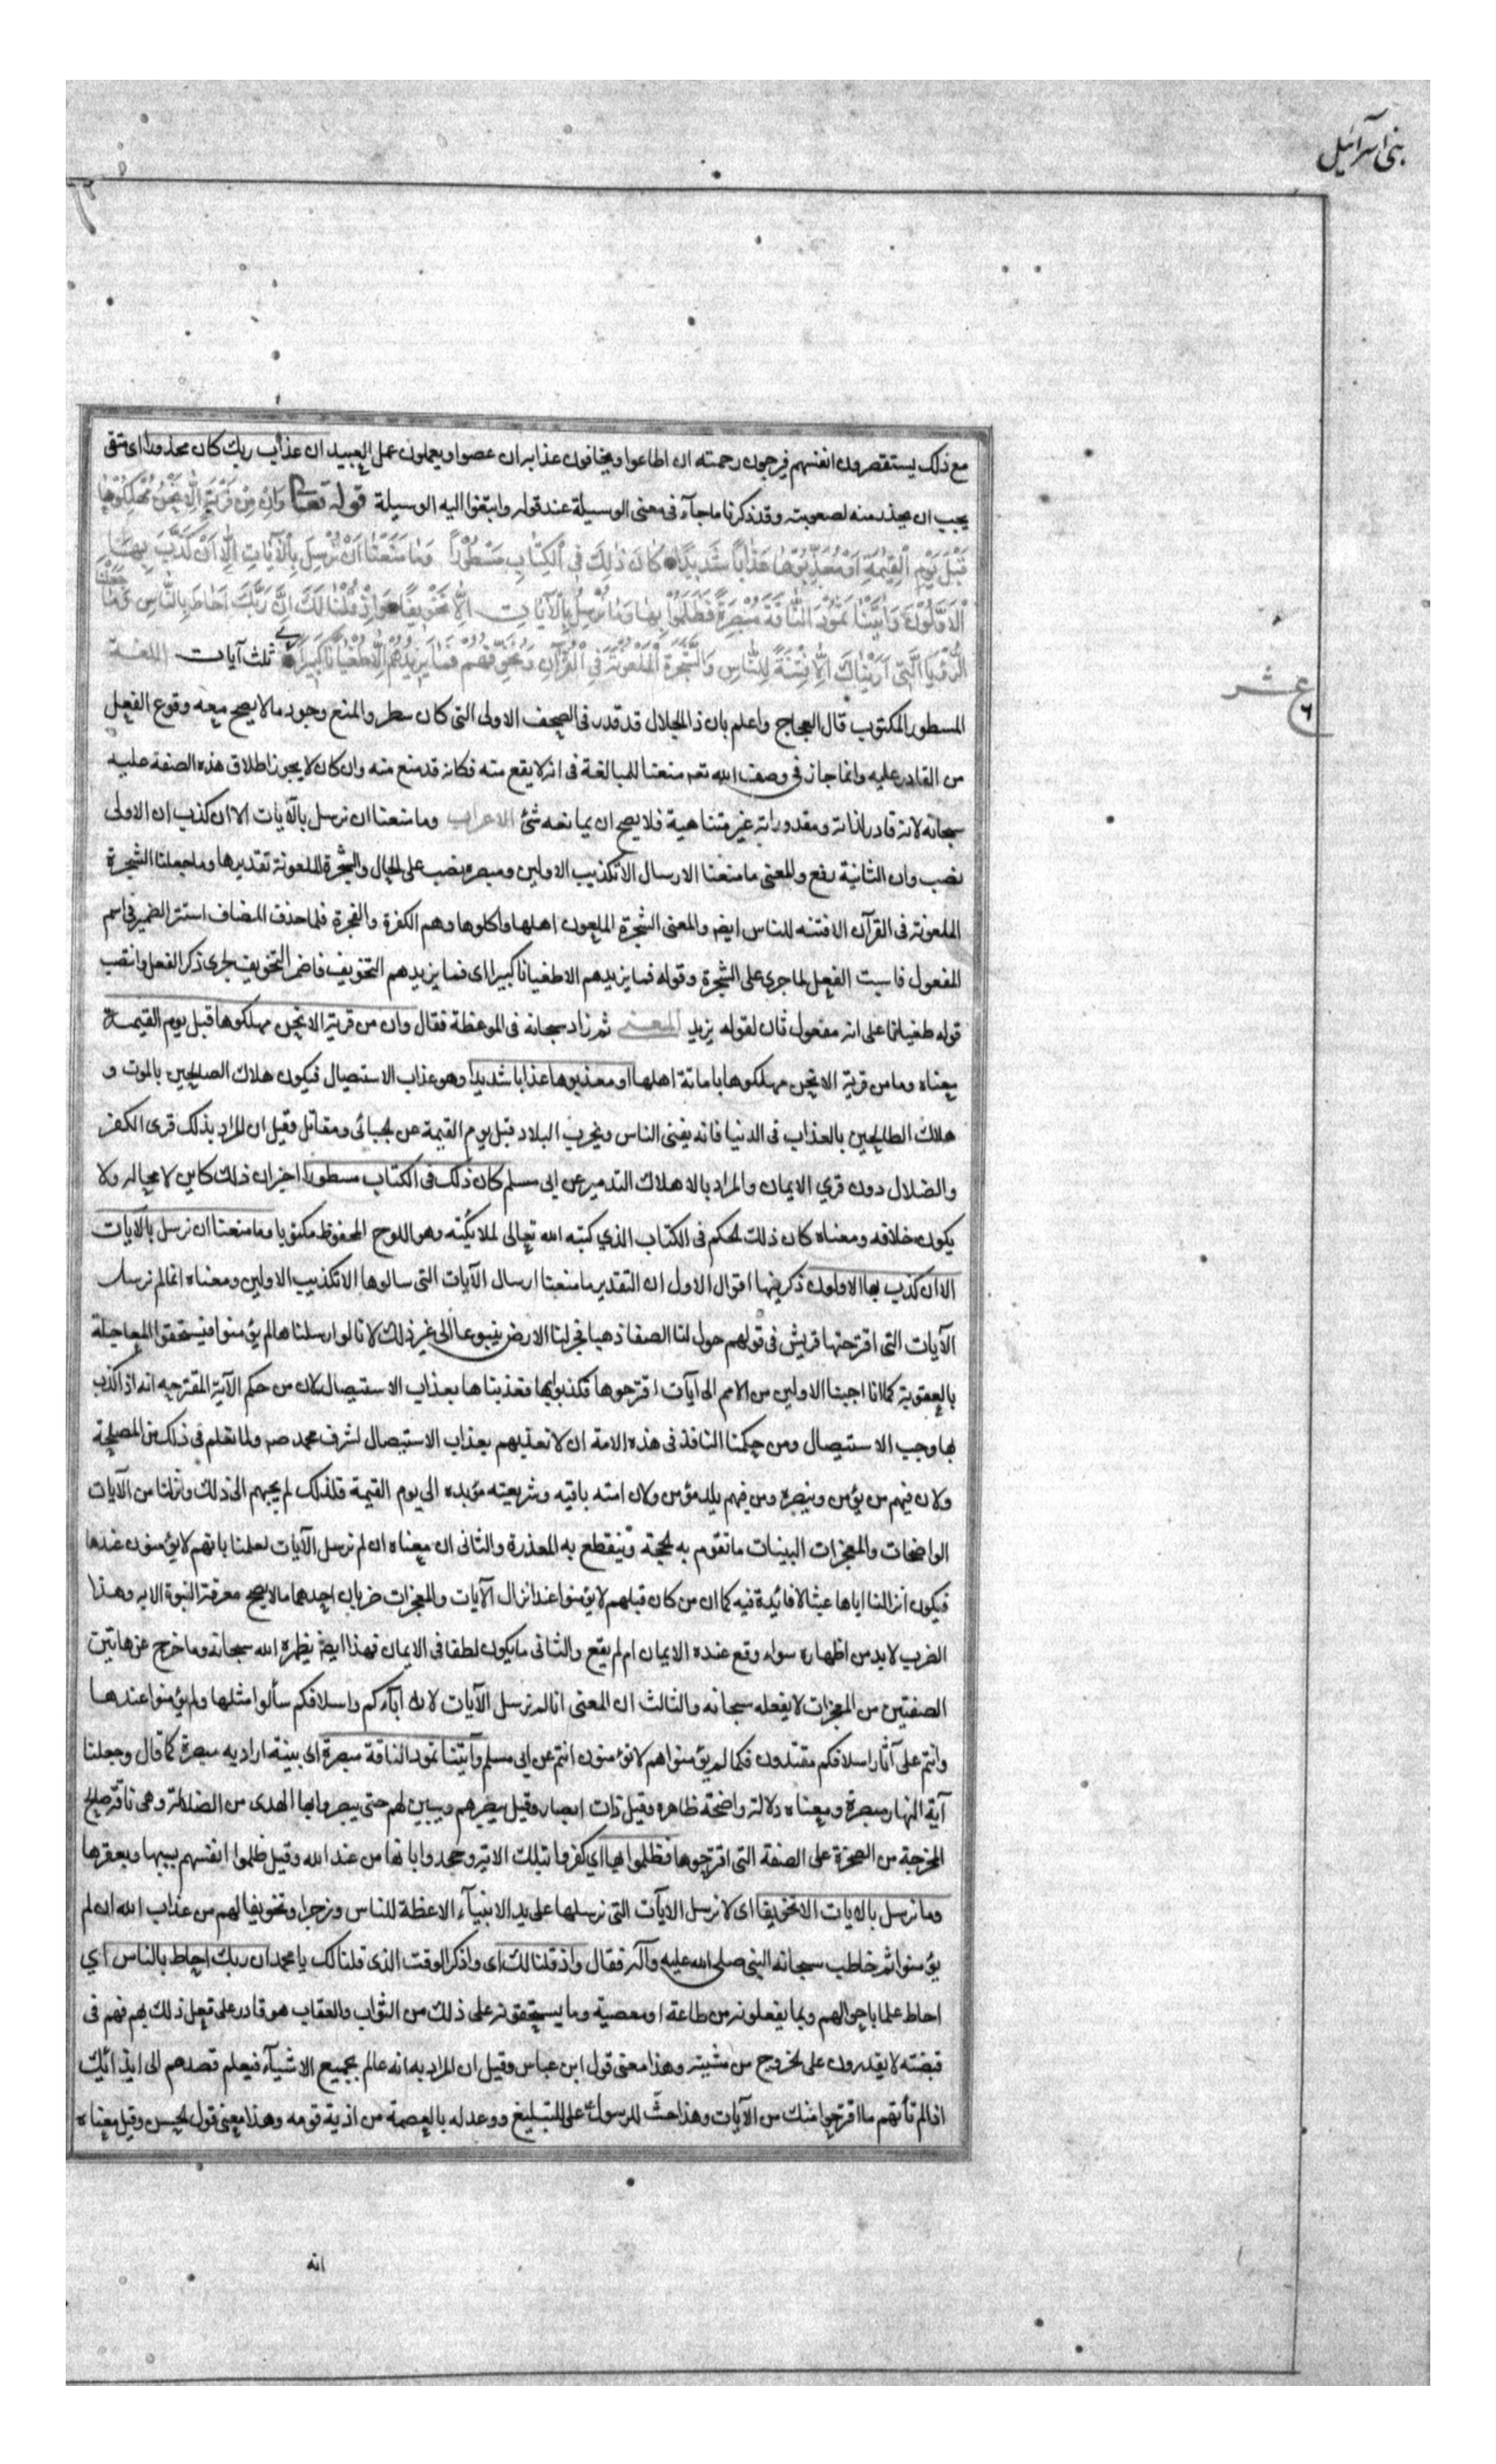 بنی اسرآئیل
مع ذلك يستقصرون انفسهم فيرجون رحمته ان اطاعوا ويخافون عذابه ان عصوا ويعملون عمل العبيد ان عذاب ربك كان محذورا اى متقى
يجب ان يحذر منه لصعوبته وقد ذكرنا ما جآء فى معنى الوسيلة عند قوله وابتغوا اليه الوسيلة قوله تعالى وَاِنْ مِنْ قَرْيَةٍ اِلّٰا نَحْنُ مُهْلِكُوهٰا
قَبْلَ يَوْمِ الْقِيٰمَةِ اَوْ مُعَذِّبُوهٰا عَذٰاباً شَدِيداً كٰانَ ذٰلِكَ فِى الْكِتٰابِ مَسْطُوراً وَمٰا مَنَعَنٰا اَنْ نُرْسِلَ بِالْآيٰاتِ اِلّٰا اَنْ كَذَّبَ بِهٰا
الْاَوَّلُونَ وَآتَيْنٰا ثَمُودَ النّٰاقَةَ مُبْصِرَةً فَظَلَمُوا بِهٰا وَمٰا نُرْسِلُ بِالْآيٰاتِ اِلّٰا تَخْوِيفاً وَاِذْ قُلْنٰا لَكَ اِنَّ رَبَّكَ اَحٰاطَ بِالنّٰاسِ وَمٰا جَعَلْنَا
الرُّؤْيَا الَّتِى اَرَيْنٰاكَ اِلّٰا فِتْنَةً لِلنّٰاسِ وَالشَّجَرَةَ الْمَلْعُونَةَ فِى الْقُرْآنِ وَنُخَوِّفُهُمْ فَمٰا يَزِيدُهُمْ اِلّٰا طُغْيٰاناً كَبِيراً ثلث آيات اللغـة
عشر
٦
المسطور المكتوب قال العجاج واعلم بان ذا الجلال قد قدر فى الصحف الاولى التى كان سطر والمنع وجود ما لا يصح معه وقوع الفعل
من القادر عليه وانما جاز فى وصف الله تعـ منعنا للمبالغة فى انه لا يقع منه فكانه قد منع منه وان كان لا يجوز اطلاق هذه الصفة عليه
سبحانه لانه قادر لذاته ومقدوراته غير متناهية فلا يصح ان يمانعه شئ الاعراب وما منعنا ان نرسل بالآيات الا ان كذب ان الاولى
نصب وان الثانية رفع والمعنى ما منعنا الارسال الا تكذيب الاولين ومبصرة نصب على الحال والشجرة الملعونة تقديرها وما جعلنا الشجرة
الملعونة فى القرآن الا فتنه للناس ايضا والمعنى الشجرة الملعون اهلها واكلوها وهم الكفرة والفجرة فلما حذف المضاف استتر الضمير فى اسم
المفعول فاسبت الفعل لما جرى على الشجرة وقوله فما يزيدهم الا طغيانا كبيرا اى فما يزيدهم التخويف فاضمر التخويف لجرى ذكر الفعل وانتصب
قوله طغيانا على انه مفعول ثان لقوله يزيد المعنى ثم زاد سبحانه فى الموعظة فقال وان من قرية الا نحن مهلكوها قبل يوم القيمـة
معناه وما من قرية الا نحن مهلكوها باماتة اهلها او معذبوها عذابا شديدا وهو عذاب الاستيصال فيكون هلاك الصالحين بالموت و
هلاك الطالحين بالعذاب فى الدنيا فانه يفنى الناس ويخرب البلاد قبل يوم القيمة عن الجبائى ومقاتل وقيل ان المراد بذلك قرى الكفر
والضلال دون قرى الايمان والمراد بالاهلاك التدمير عن ابى مسلم كان ذلك فى الكتاب مسطورا اخبر ان ذلك كاين لا محاله ولا
يكون خلافه ومعناه كان ذلك الحكم فى الكتاب الذي كتبه الله تعالى لملائكته وهو اللوح المحفوظ مكتوبا وما منعنا ان نرسل بالآيات
الا ان كذب بها الاولون ذكر فيها اقوال الاول ان التقدير ما منعنا ارسال الآيات التى سالوها الا تكذيب الاولين ومعناه انما لم نرسل
الآيات التى اقترحتها قريش فى قولهم حول لنا الصفا ذهبا وفجر لنا الارض ينبوعا الى غير ذلك لانا لو ارسلناها لم يؤمنوا فيستحقوا المعاجلة
بالعقوبة كما انا اجبنا الاولين من الامم الى آيات اقترحوها فكذبوا بها فعذبناها بعذاب الاستيصال لان من حكم الآية المقترحه انه اذا كذب
بها وجب الاستيصال ومن حكمنا النافذ فى هذه الامة ان لا نعذبهم بعذاب الاستيصال لشرف محمد صم ولما نعلم فى ذلك من المصلحة
ولان فيهم من يؤمن وينصره ومن فيهم يلد مؤمن ولان امته باقيه وشريعته مؤبده الى يوم القيمة فلذلك لم يجبهم الى ذلك وانزلنا من الآيات
الواضحات والمعجزات البينات ما تقوم به الحجة وتنقطع به المعذرة والثانى ان معناه ان لم نرسل الآيات لعلمنا بانهم لا يؤمنون عندها
فيكون انزالنا اياها عبثا لا فائدة فيه كما ان من كان قبلهم لا يؤمنوا عند انزال الآيات والمعجزات ضربان احدهما مالا يصح معرفة النبوة الا به وهذا
الضرب لا بد من اظهاره سواء وقع عنده الايمان ام لم يقع والثانى ما يكون لطفا فى الايمان فهذا ايضا يظهره الله سبحانه وما خرج عن هاتين
الصفتين من المعجزات لا يفعله سبحانه والثالث ان المعنى انا لم نرسل الآيات لان آبآءكم واسلافكم سألوا مثلها ولم يؤمنوا عندهـا
وانتم على آثار اسلافكم مقتدون فكما لم يؤمنوا هم لا تؤمنون انتم عن ابى مسلم وآتينا ثمود الناقة مبصرة اى بينة اراد به مبصرة كما قال وجعلنا
آية النهار مبصرة ومعناه دلالة واضحة ظاهره وقيل ذات ابصار وقيل يبصرهم ويبين لهم حتى يبصروا بها الهدى من الضلالة وهى ناقة صالح
المخرجة من الصخرة على الصفة التى اقترحوها فظلموا بها اي كفروا بتلك الاية وجحدوا بانها من عند الله وقيل ظلموا انفسهم بسببها وبعقرها
وما نرسل بالايات الا تخويفا اى لا نرسل الايآت التى نرسلها على يد الانبيآء الا عظة للناس وزجرا وتخويفا لهم من عذاب الله ان لم
يؤمنوا ثم خاطب سبحانه النبى صلى الله عليه وآله فقال واذ قلنا لك اى واذكر الوقت الذى قلنا لك يا محمد ان ربك احاط بالناس اي
احاط علما باحوالهم وبما يفعلونه من طاعة او معصية وما يستحقونه على ذلك من الثواب والعقاب هو قادر على فعل ذلك بهم فهم فى
قبضته لا يقدرون على الخروج من مشيته وهذا معنى قول ابن عباس وقيل ان المراد به انه عالم بجميع الاشيآء فيعلم قصدهم الى ايذائك
اذا لم تأتهم ما اقترحوا منك من الآيات وهذا حث للرسول على التبليغ ووعد له بالعصمة من اذية قومه وهذا معنى قول الحسن وقيل معناه
انه